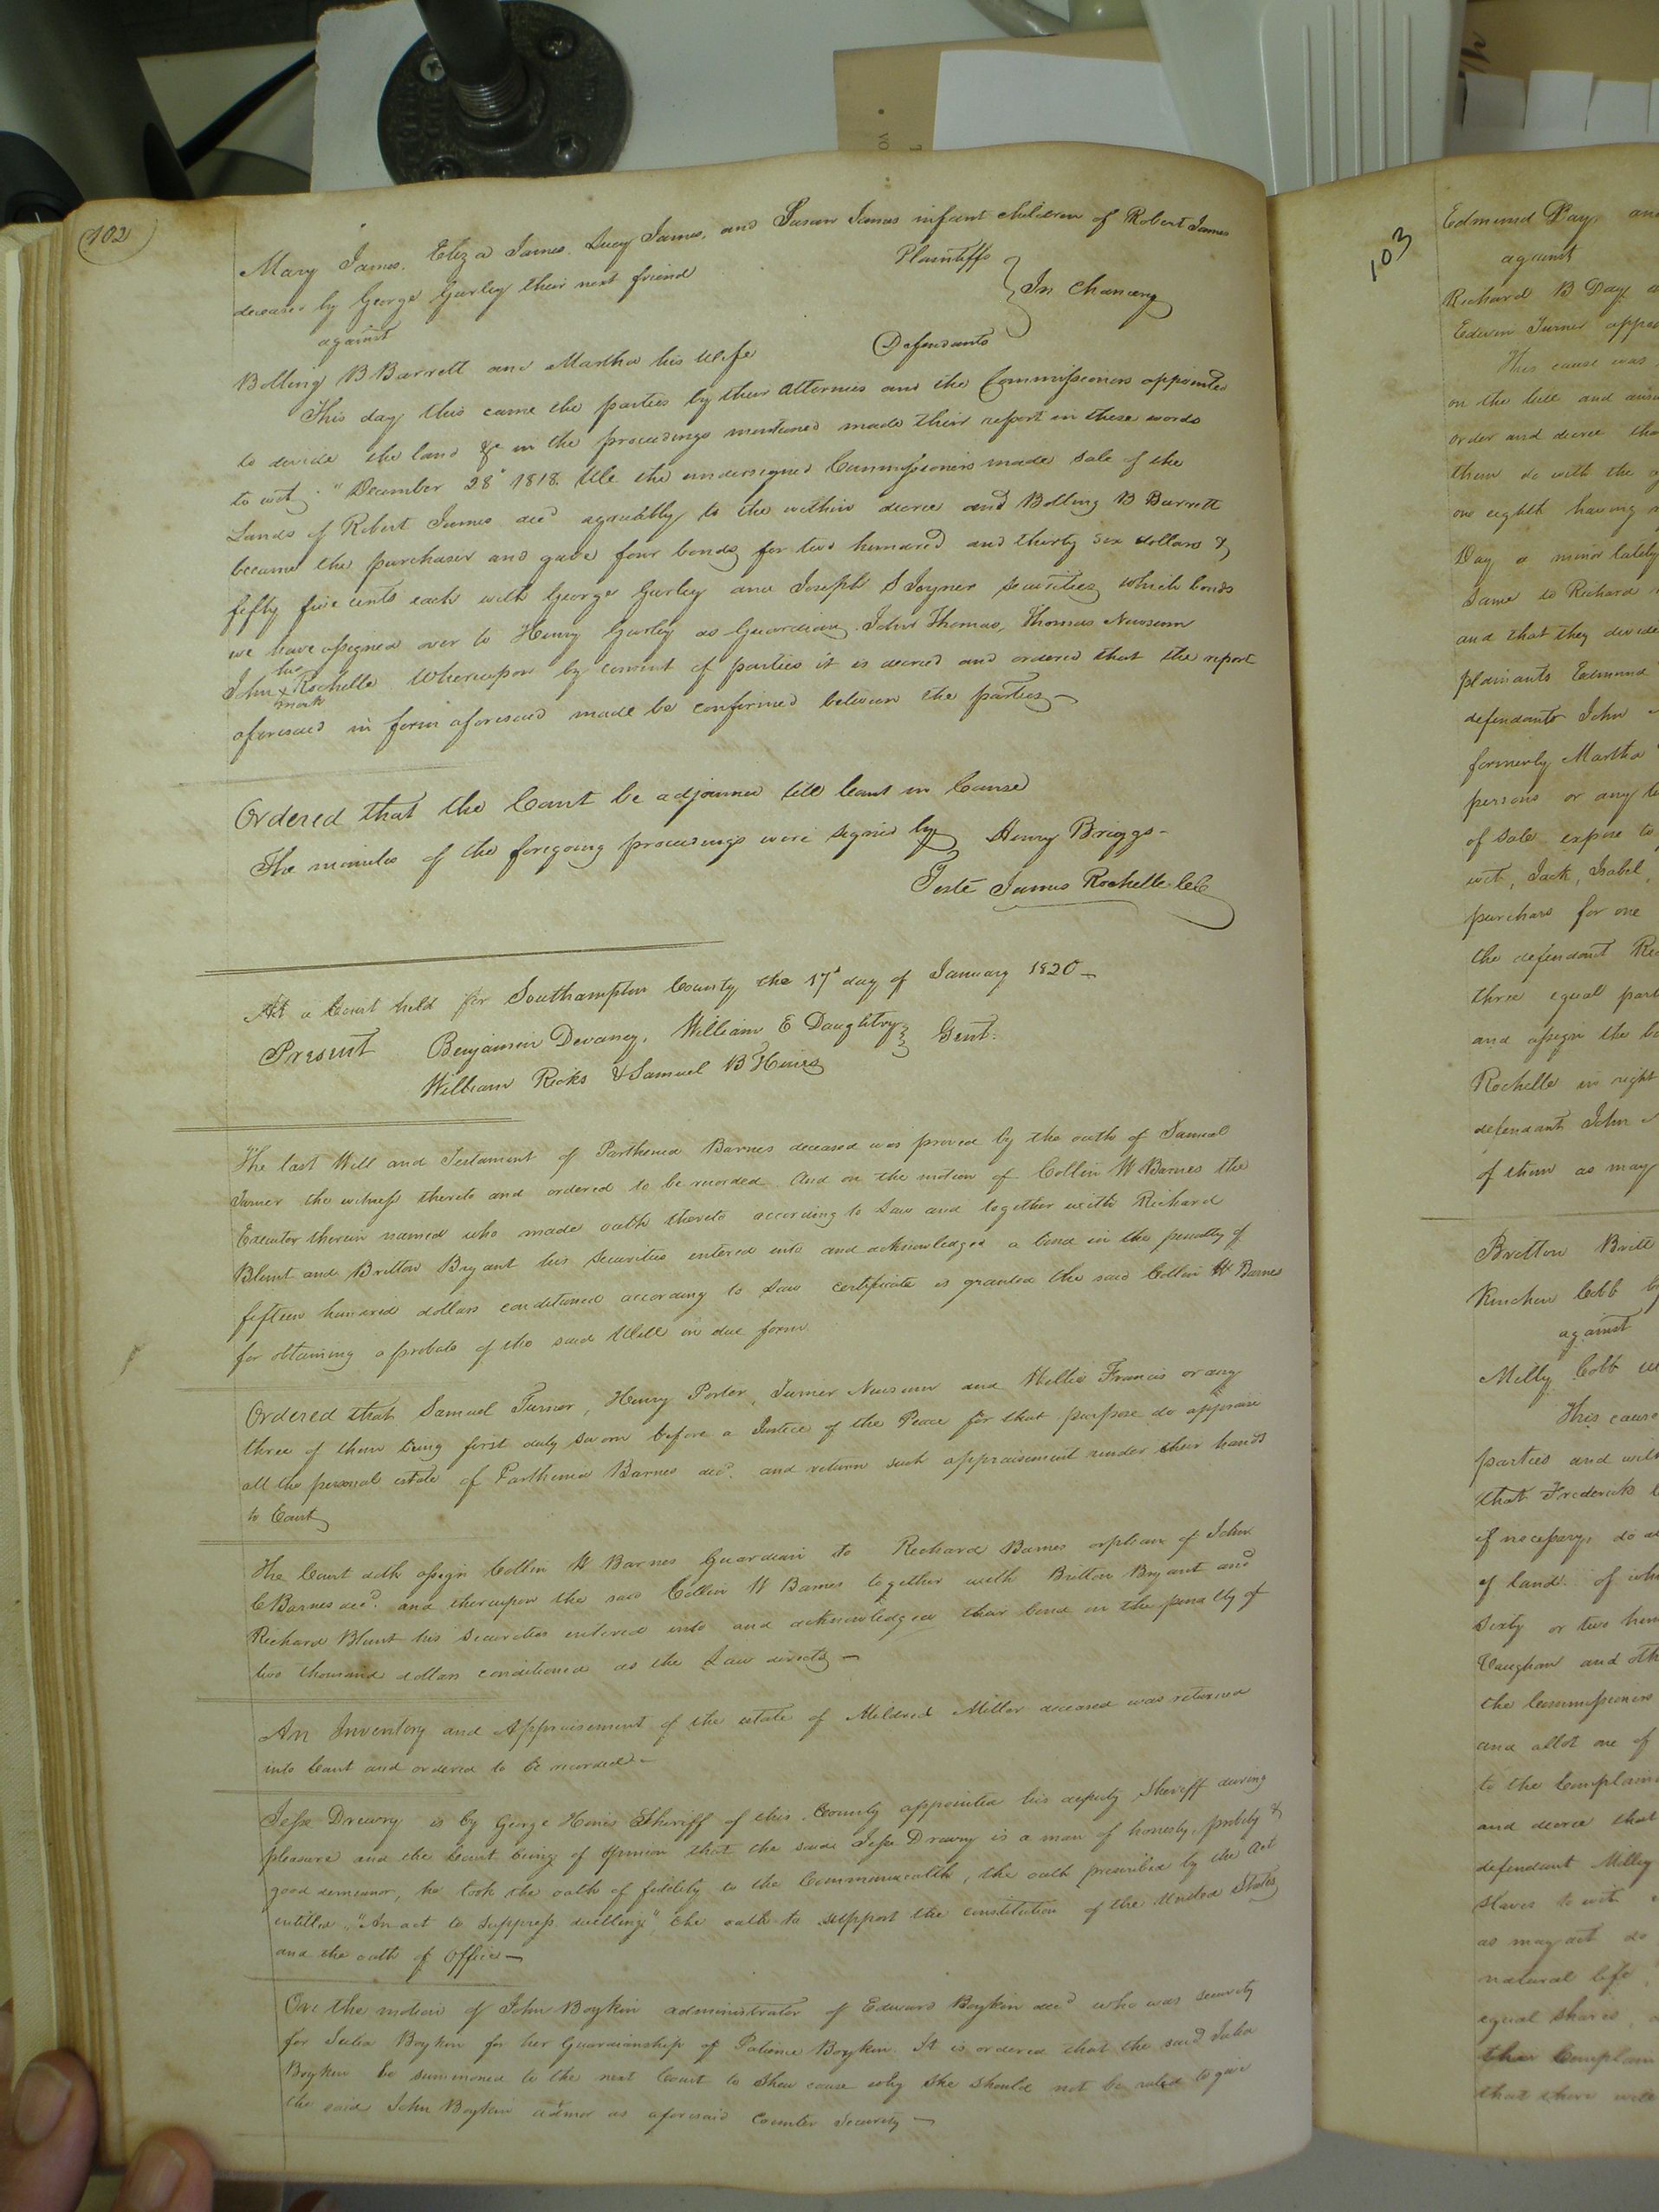 102
Mary James, Eliza James, Lucy James, and Susan James infant children of Robert James
deceased by George Gurley their next friend Plaintiffs
against
In Chancery
Bolling B Barrett and Martha his Wife Defendants
This day this came the parties by their attornies and the Commissioners appointed
to divide the land &c in the proceedings mentioned made their report in these words
to wit, "December 28th 1818. We the undersigned Commissioners made sale of the
Lands of Robert James decd agreeably to the within decree and Bolling B Barrett
became the purchaser and gave four bonds for two hundred and thirty six dollars &
fifty five cents each with George Gurley and Joseph S Joyner securities, which bonds
we have assigned over to Henry Gurley as Guardian. John Thomas, Thomas Newsum
John his x mark Rochelle. Whereupon by consent of parties it is decreed and ordered that the report
aforesaid in form aforesaid made be confirmed between the parties
Ordered that the Court be adjourned till Court in Course
The minutes of the foregoing proceedings were signed by Henry Briggs -
Teste James Rochelle
At a Court held for Southampton County the 17th day of January 1820 -
Present Benjamin Devaney, William E Daughtry Gent.
William Ricks & Samuel B Hines
The last Will and Testament of Parthenia Barnes deceased was proved by the oath of Samuel
Turner the witness thereto and ordered to be recorded. And on the motion of Collin W Barnes the
Executor therein named who made oath thereto according to Law and together with Richard
Blunt and Britton Bryant his securities entered into and acknowledged a bond in the penalty of
fifteen hundred dollars conditioned according to Law certificate is granted the said Collin W Barnes
for obtaining a probate of the said Will in due form
Ordered that Samuel Turner, Henry Porter, Turner Newsum and Willie Francis or any
three of them being first duly sworn before a Justice of the Peace for that purpose do appraise
all the personal estate of Parthenia Barnes decd. and return such appraisement under their hands
to Court
The Court doth assign Collin W Barnes Guardian to Richard Barnes orphan of John
C Barnes decd. and thereupon the said Collin W Barnes together with Britton Bryant and
Richard Blunt his Securities entered into and acknowledged their bond in the penalty of
two thousand dollars conditioned as the Law directs -
An Inventory and Appraisement of the estate of Mildred Miller deceased was returned
into Court and ordered to be recorded -
Jesse Drewry is by George Hines Sheriff of this County appointed his deputy Sheriff during
pleasure and the Court being of opinion that the said Jesse Drewry is a man of honesty, probity &
good demeanor, he took the oath of fidelity to the Commonwealth, the oath prescribed by the Act
entitled "An act to suppress duelling", the oath to support the constitution of the United States
and the oath of Office -
On the motion of John Boykin administrator of Edward Boykin decd who was security
for Julia Boykin for her Guardianship of Patience Boykin. It is ordered that the said Julia
Boykin be summoned to the next Court to shew cause why she should not be ruled to give
the said John Boykin admor as aforesaid Counter Security -
103
Edmund Day, and
against
Richard B Day
Edwin Turner
This cause was
on the bill and
order and decree
them do with the
one eighth having
Day a minor lately
same to Richard
and that they divide
plainants Edmund
defendants John
formerly Martha
persons or any
of Sale expose to
wit, Jack, Isabel,
purchase for one
the defendant
three equal
and assign the
Rochelle in right
defendant John
of them as may
Britton Britt
Kinchen Cobb
against
Milly Cobb
This cause
parties and
that Frederick
if necessary, do
of land. of
sixty or two
Vaughan and
the Commissioners
and allot one of
to the
and decree that
defendant Milly
Slaves to wit
as may act do
natural life,
equal shares,
that there